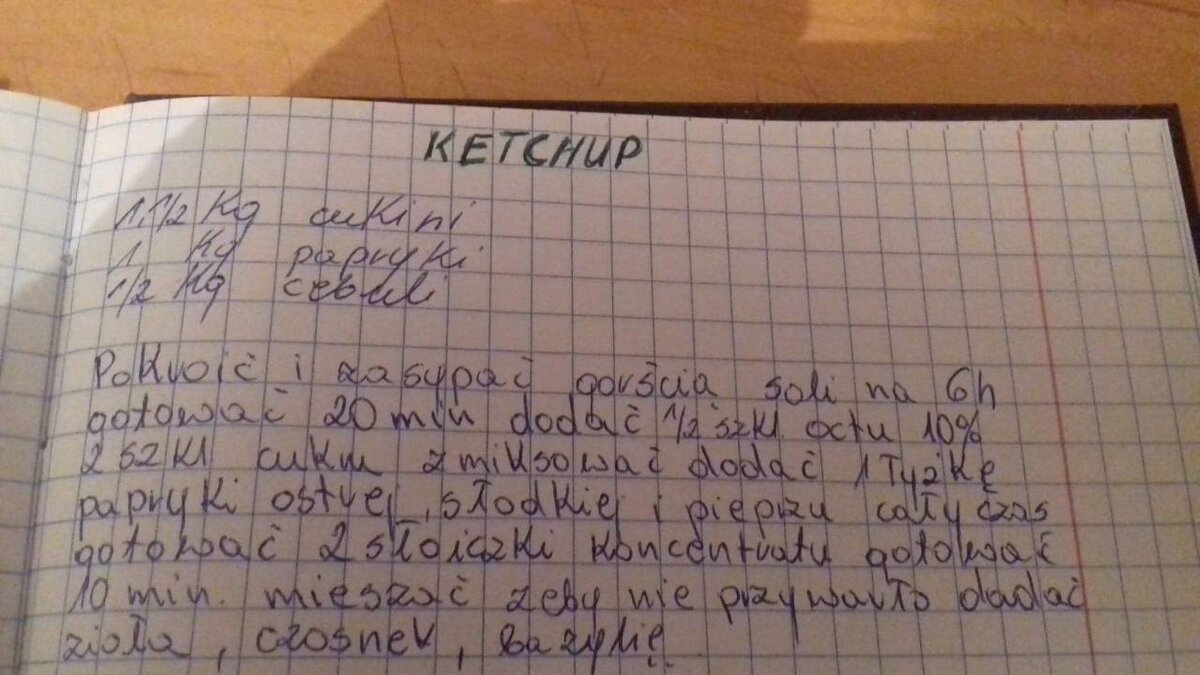 KETCHUP
1.1/2 Kg cukini
1 Kg papryki
1/2 Kg cebuli
Pokroić i zasypać gorścia soli na 6h
gotować 20 min dodać 1/2 szkl. octu 10%
2 szkl cukru zmiksować dodać 1 łyżkę
papryki ostrej, słodkiej i pieprzu cały czas
gotować 2 słoiczki koncentratu gotować
10 min. mieszać żeby nie przywarło dadać
zioła, czosnek, bazylię